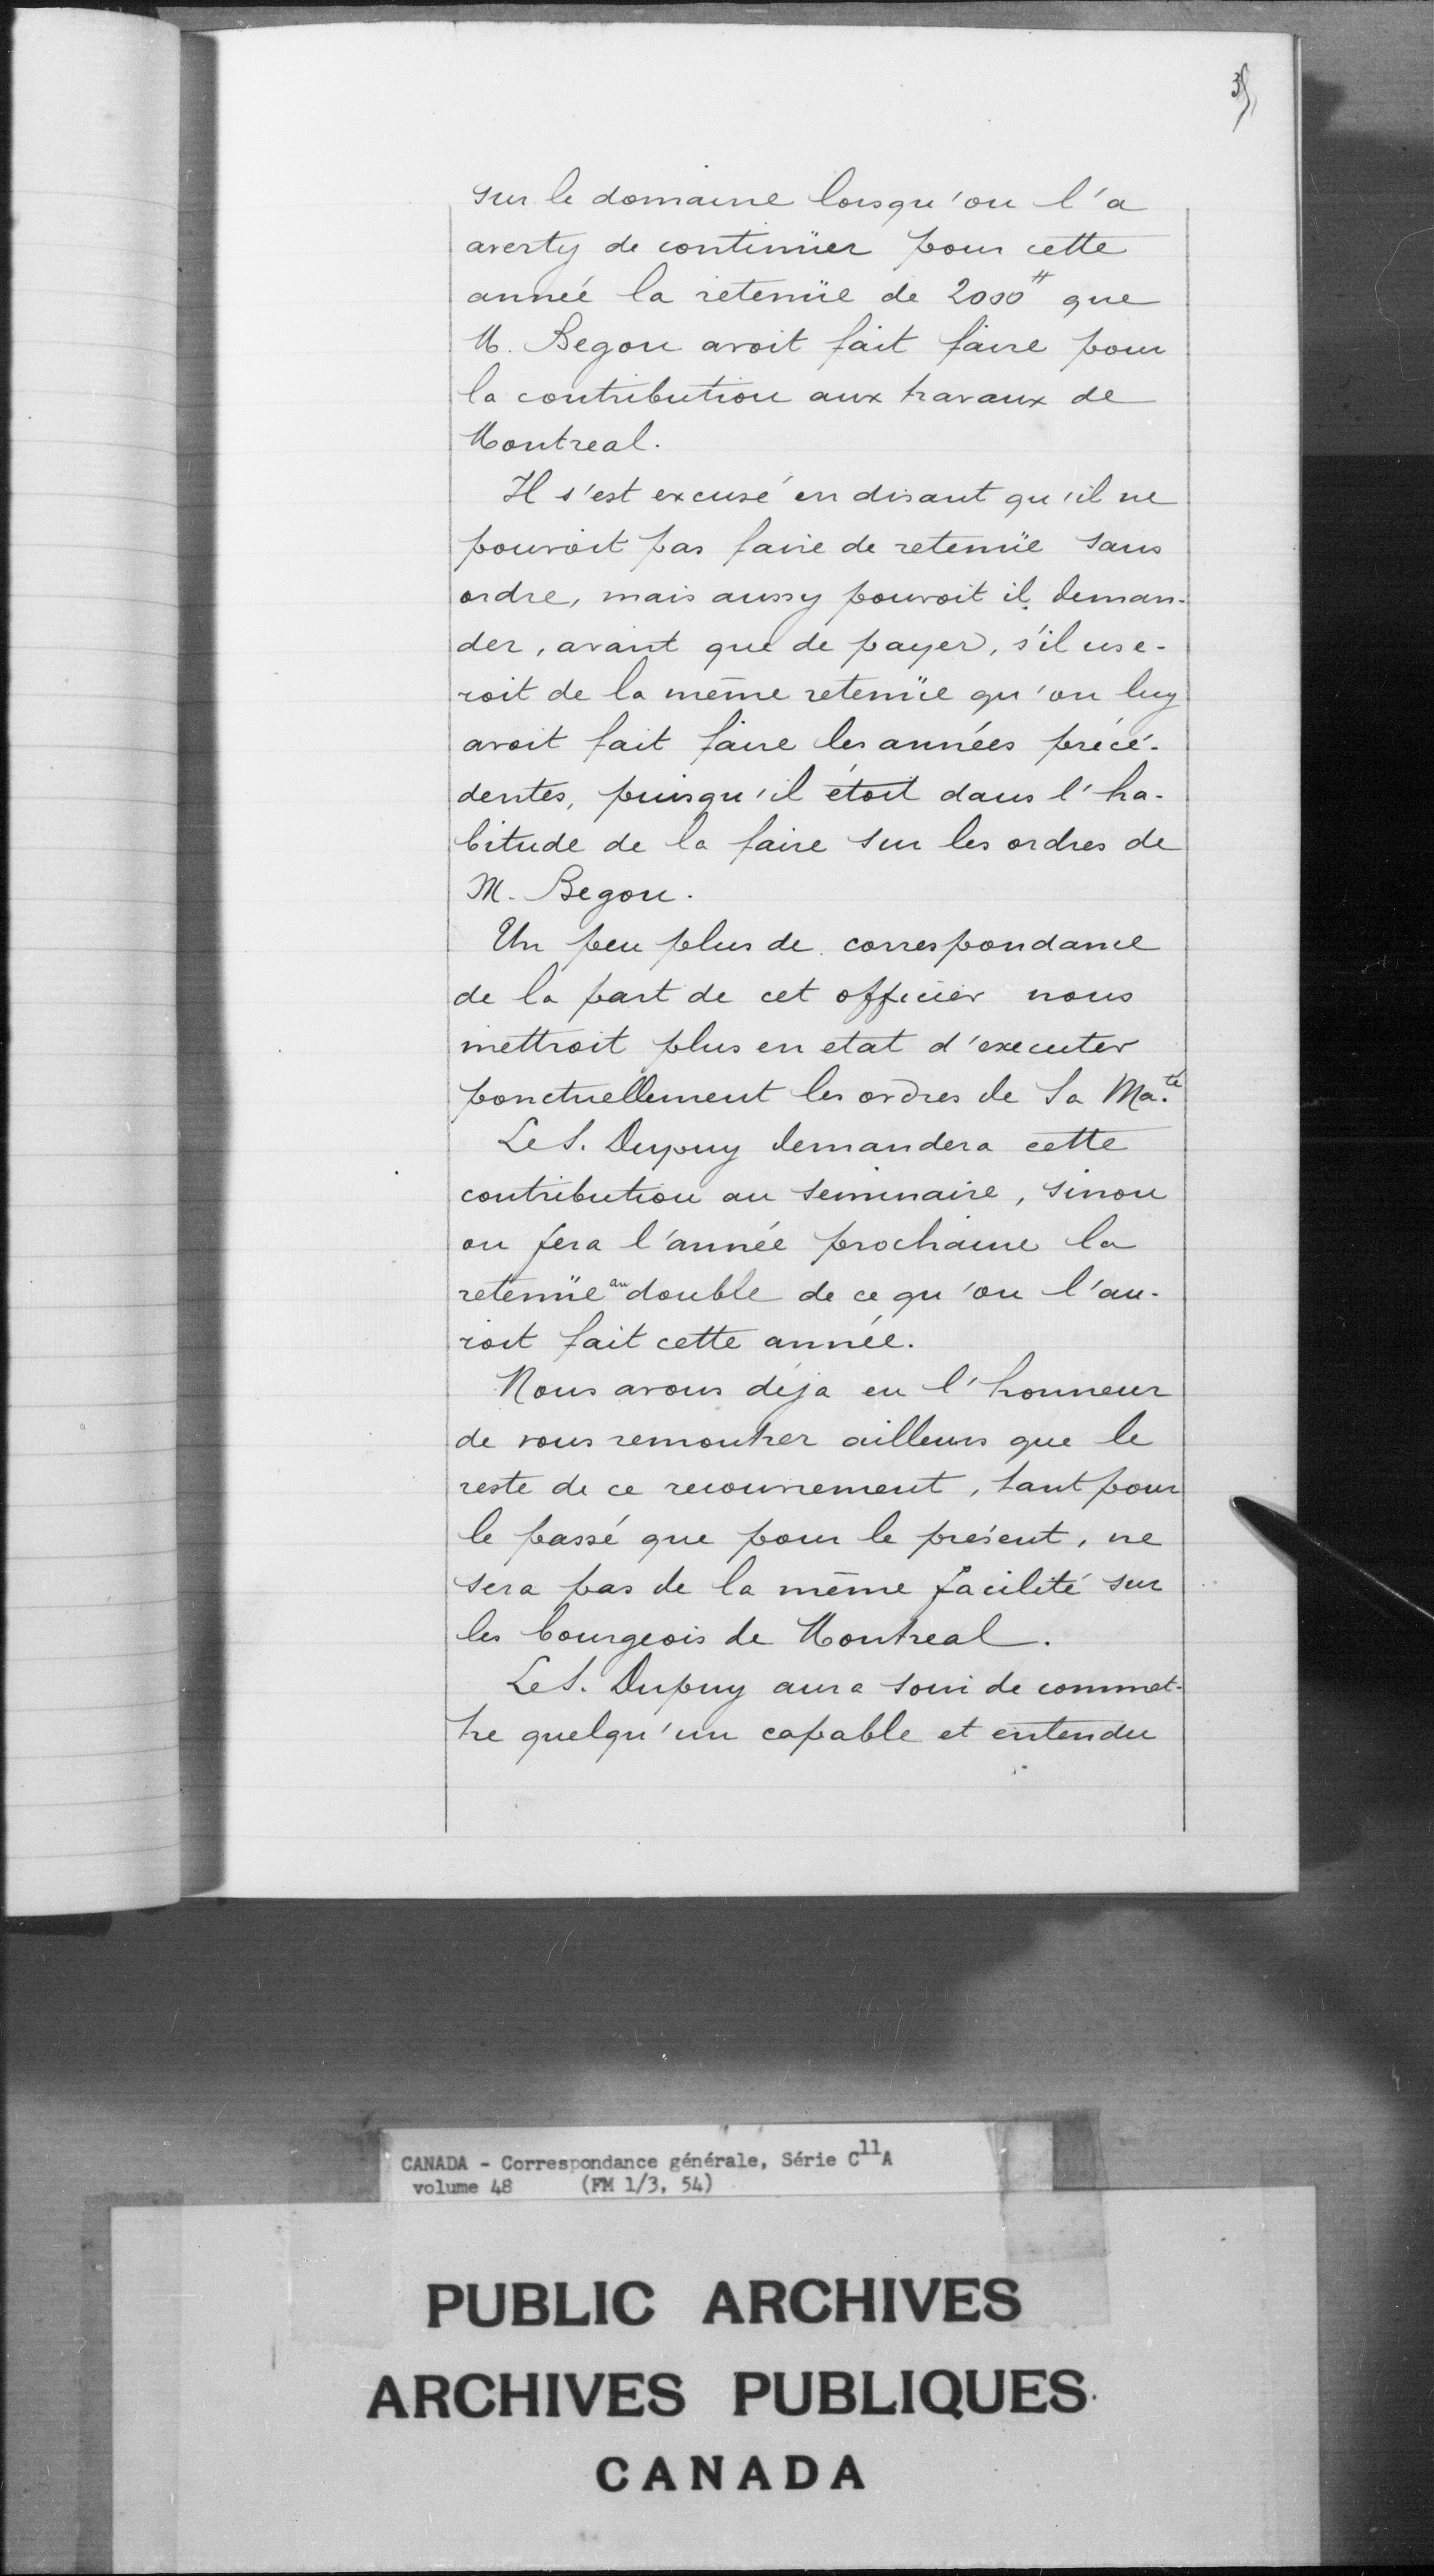 35
sur le domaine lorsqu'on l'a
averty de continüer pour cette
année la retenüe de 2000# que
M. Begon avoit fait faire pour
la contribution aux travaux de
Montreal.
Il s'est excusé en disant qu'il ne
pouvoit pas faire de retenüe sans
ordre, mais aussy pouvoit il deman-
der, avant que de payer, s'il use-
roit de la même retenüe qu'on luy
avoit fait faire les années précé-
dentes, puisqu'il étoit dans l'ha-
bitude de la faire sur les ordres de
M. Begon.
Un peu plus de correspondance
de la part de cet officier nous
mettroit plus en etat d'executer
ponctuellement les ordres de Sa Ma.té
Le S. Dupuy demandera cette
contribution au seminaire, sinon
on fera l'année prochaine la
retenüe au double de ce qu'on l'au-
roit fait cette année.
Nous avons déja eu l'honneur
de vous remontrer ailleurs que le
reste de ce recouvrement, tant pour
le passé que pour le présent, ne
sera pas de la même facilité sur
les bourgeois de Montreal.
Le S. Dupuy aura soin de commet-
tre quelqu'un capable et entendu
CANADA - Correspondance générale, Série C11A
volume 48 (FM 1/3, 54)
PUBLIC ARCHIVES
ARCHIVES PUBLIQUES
CANADA